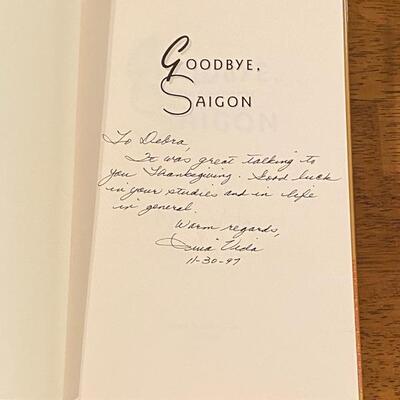 GOODBYE,
SAIGON
To Debra,
It was great talking to
you Thanksgiving. Good luck
in your studies and in life
in general.
Warm regards,
Nina Vida
11-30-97